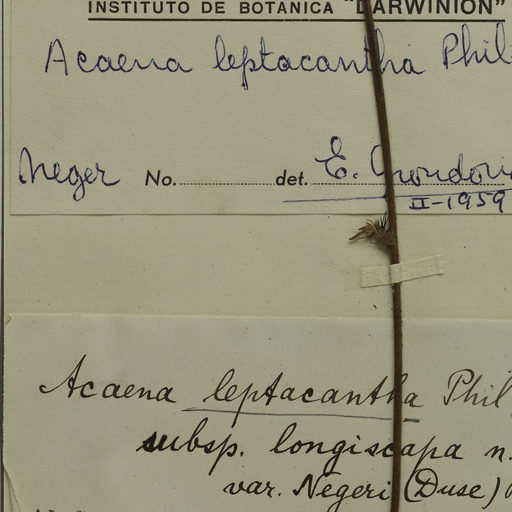 INSTITUTO DE BOTANICA "DARWINION"
Acaena leptacantha Phil
Neger No. det. E.
II-1959
Acaena leptacantha Phil
subsp. longiscapa n.
var. Negeri (Duse)